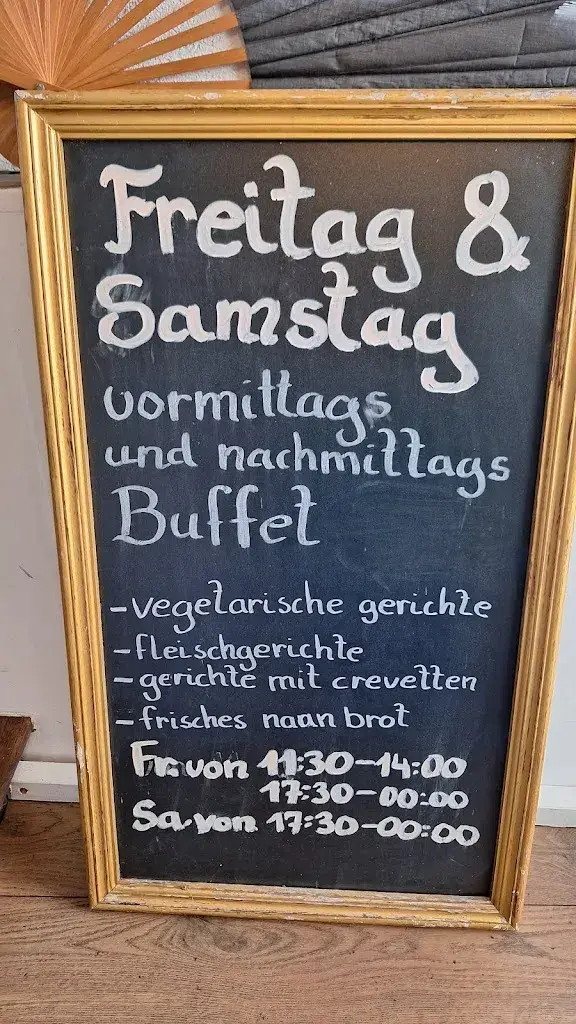 Freitag &
Samstag
vormittags
und nachmittags
Buffet
-vegetarische gerichte
-fleischgerichte
-gerichte mit crevetten
-frisches naan brot
Fr. von 11:30-14:00
17:30-00:00
Sa. von 17:30-00:00